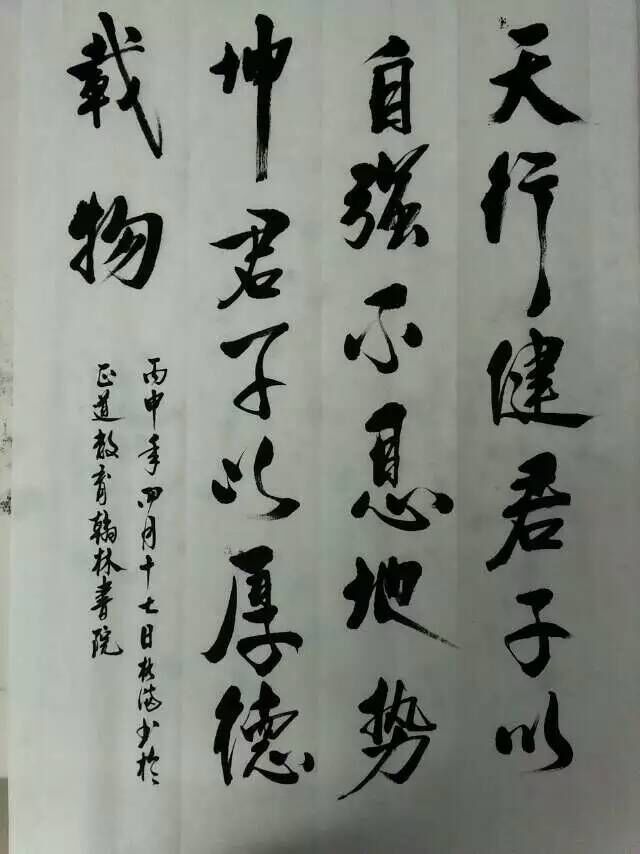 天行健君子以
自强不息地势
坤君子以厚德
载物
丙申年四月十七日松涛书於
正道教育翰林书院